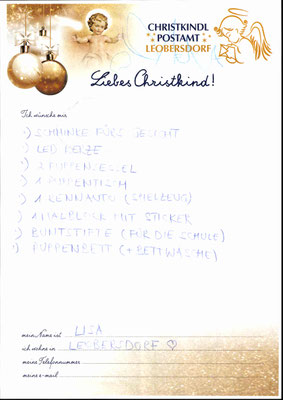 CHRISTKINDL
POSTAMT
LEOBERSDORF
Liebes Christkind!
Ich wünsche mir
·) SCHMINKE FÜRS GESICHT
·) LED KERZE
·) 2 PUPPENSESSEL
·) 1 PUPPENTISCH
·) 1 RENNAUTO (SPIELZEUG)
·) 1 MALBLOCK MIT STICKER
·) BUNTSTIFTE (FÜR DIE SCHULE)
·) PUPPENBETT (+ BETTWÄSCHE)
mein Name ist LISA
ich wohne in LEOBERSDORF ♡
meine Telefonnummer
meine e-mail